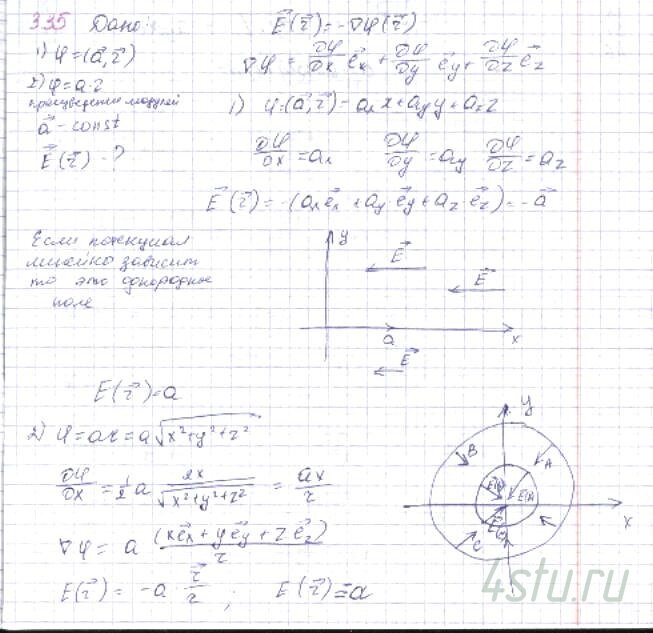 335 Дано:
1) φ = (a⃗, r⃗)
2) φ = a·r
произведение модулей
a⃗ - const
E⃗(r⃗) - ?
E⃗(r⃗) = -∇φ(r⃗)
∇φ = ∂φ/∂x e⃗x + ∂φ/∂y e⃗y + ∂φ/∂z e⃗z
1) φ = (a⃗, r⃗) = axx + ayy + azz
∂φ/∂x = ax ∂φ/∂y = ay ∂φ/∂z = az
E⃗(r⃗) = -(axe⃗x + ay e⃗y + az e⃗z) = -a⃗
Если потенциал
линейно зависит
то это однородное
поле
y
E⃗
E⃗
a
x
E⃗
E(r⃗) = a
2) φ = ar = a√(x²+y²+z²)
∂φ/∂x = 1/2 a 2x/√(x²+y²+z²) = ax/r
∇φ = a (xe⃗x + ye⃗y + ze⃗z)/r
E⃗(r⃗) = -a · r⃗/r ; E(r⃗) = a
y
B
A
E(A)
x
C
4stu.ru